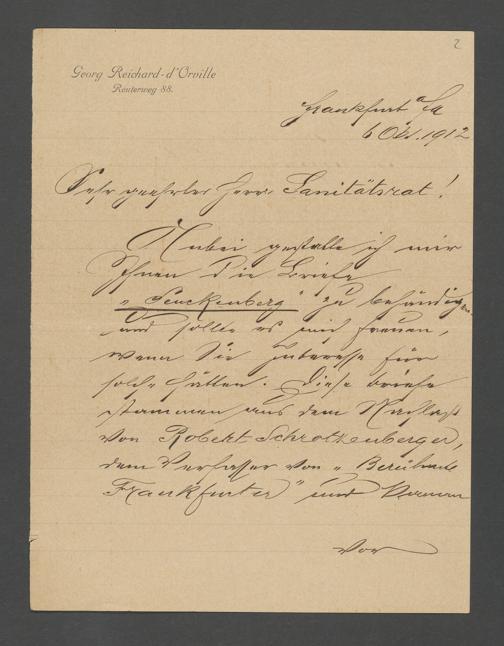 2
Georg Reichard-d'Orville
Reuterweg 88.
Frankfurt a/M
6 Okt. 1912
Sehr geehrter Herr Sanitätsrat!
Anbei gestatte ich mir
Ihnen die Briefe
"Senckenberg" zu behändigen
und sollte es mich freuen,
wenn Sie Interesse für
solche hätten. Diese Briefe
stammen aus dem Nachlaß
von Robert Schrotzenberger,
dem Verfasser von "Berühmte
Frankfurter" und kamen
vor